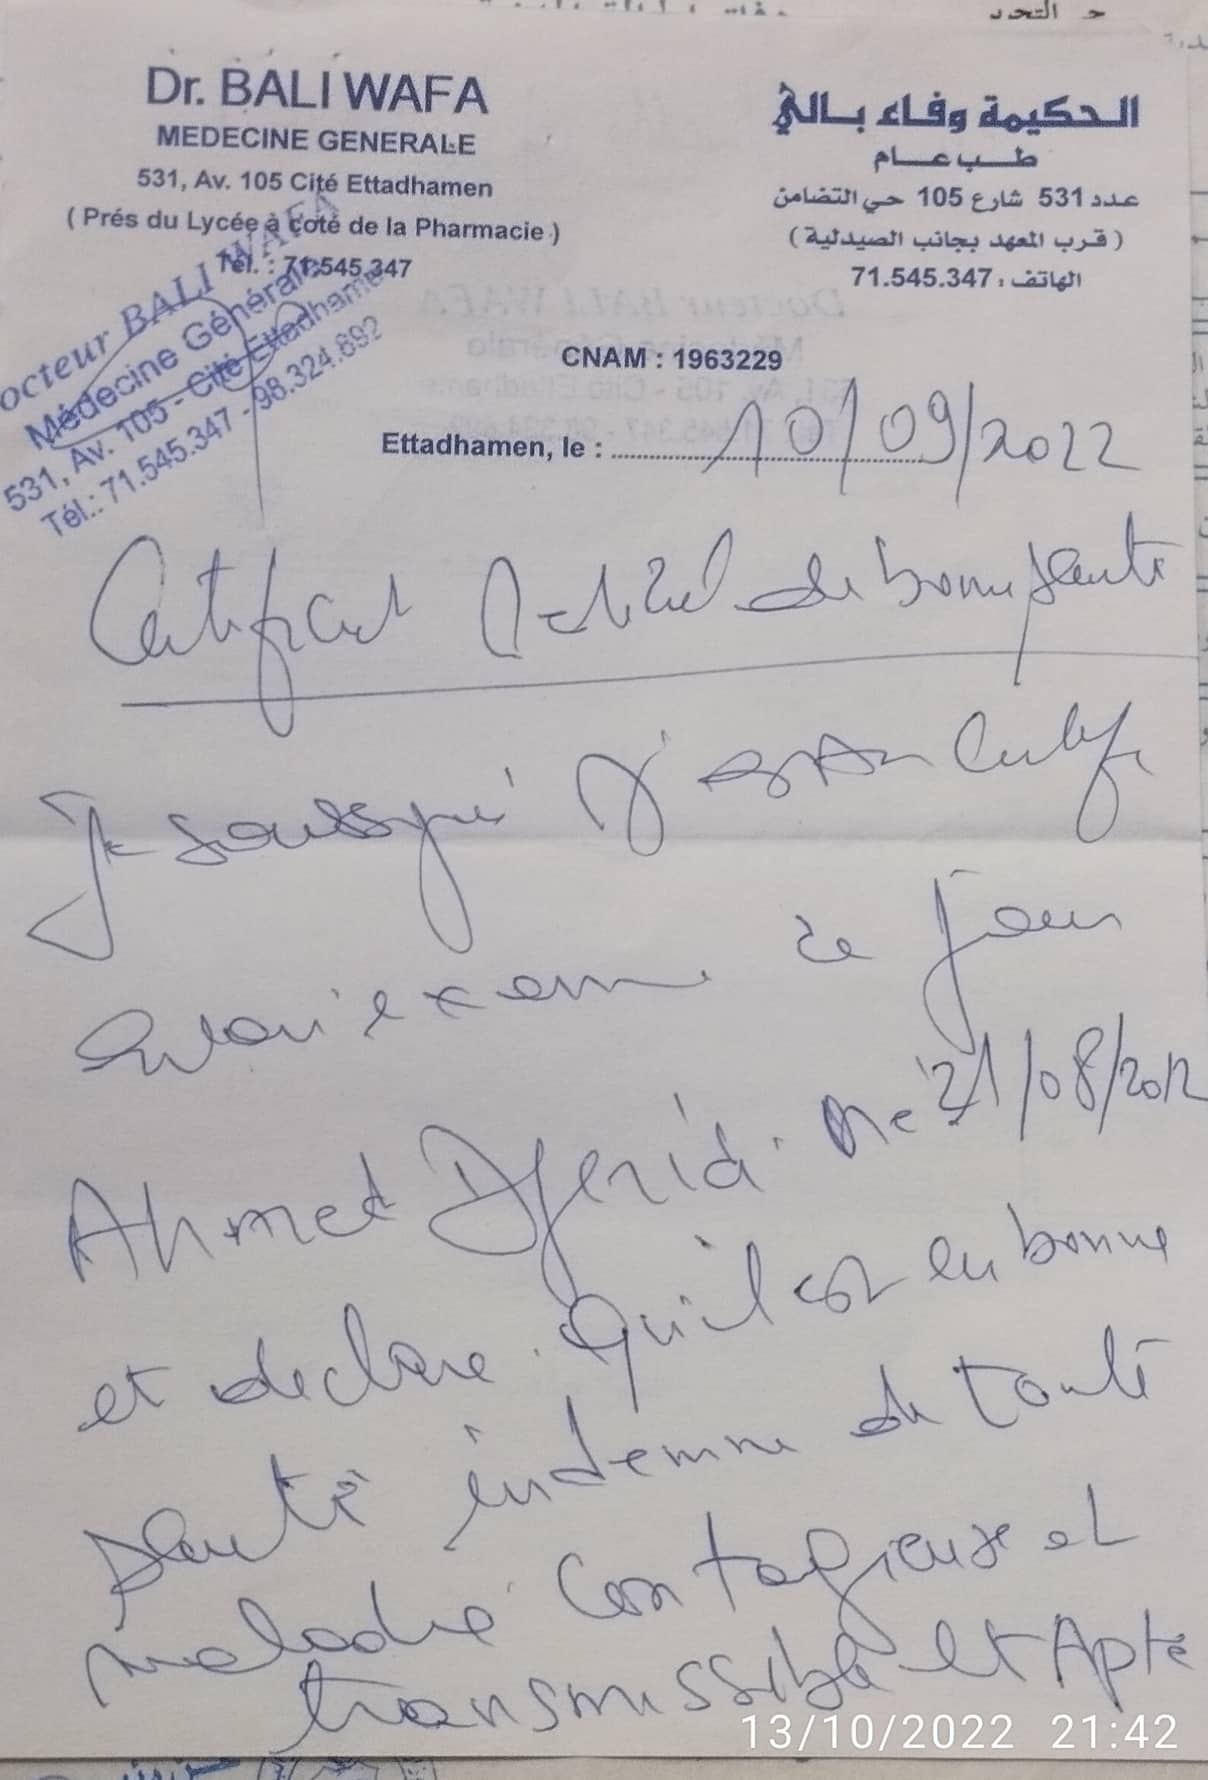 Dr. BALI WAFA
MEDECINE GENERALE
531, Av. 105 Cité Ettadhamen
( Prés du Lycée à coté de la Pharmacie )
Tél. : 71.545.347
الحكيمة وفاء بالي
طب عام
عدد 531 شارع 105 حي التضامن
( قرب المعهد بجانب الصيدلية )
الهاتف : 71.545.347
octeur BALI WAFA
Médecine Générale
531, Av. 105 - Cité Ettadhame
Tél.: 71.545.347 - 98.324.692
CNAM : 1963229
Ettadhamen, le : 10/09/2022
Certificat Médical de bonne santé
Je soussigné
avoir examiné ce jour
Ahmed Djeridi né 21/08/2012
et déclare qu'il est en bonne
santé indemne de toute
maladie contagieuse et
transmissible et Apte
13/10/2022 21:42